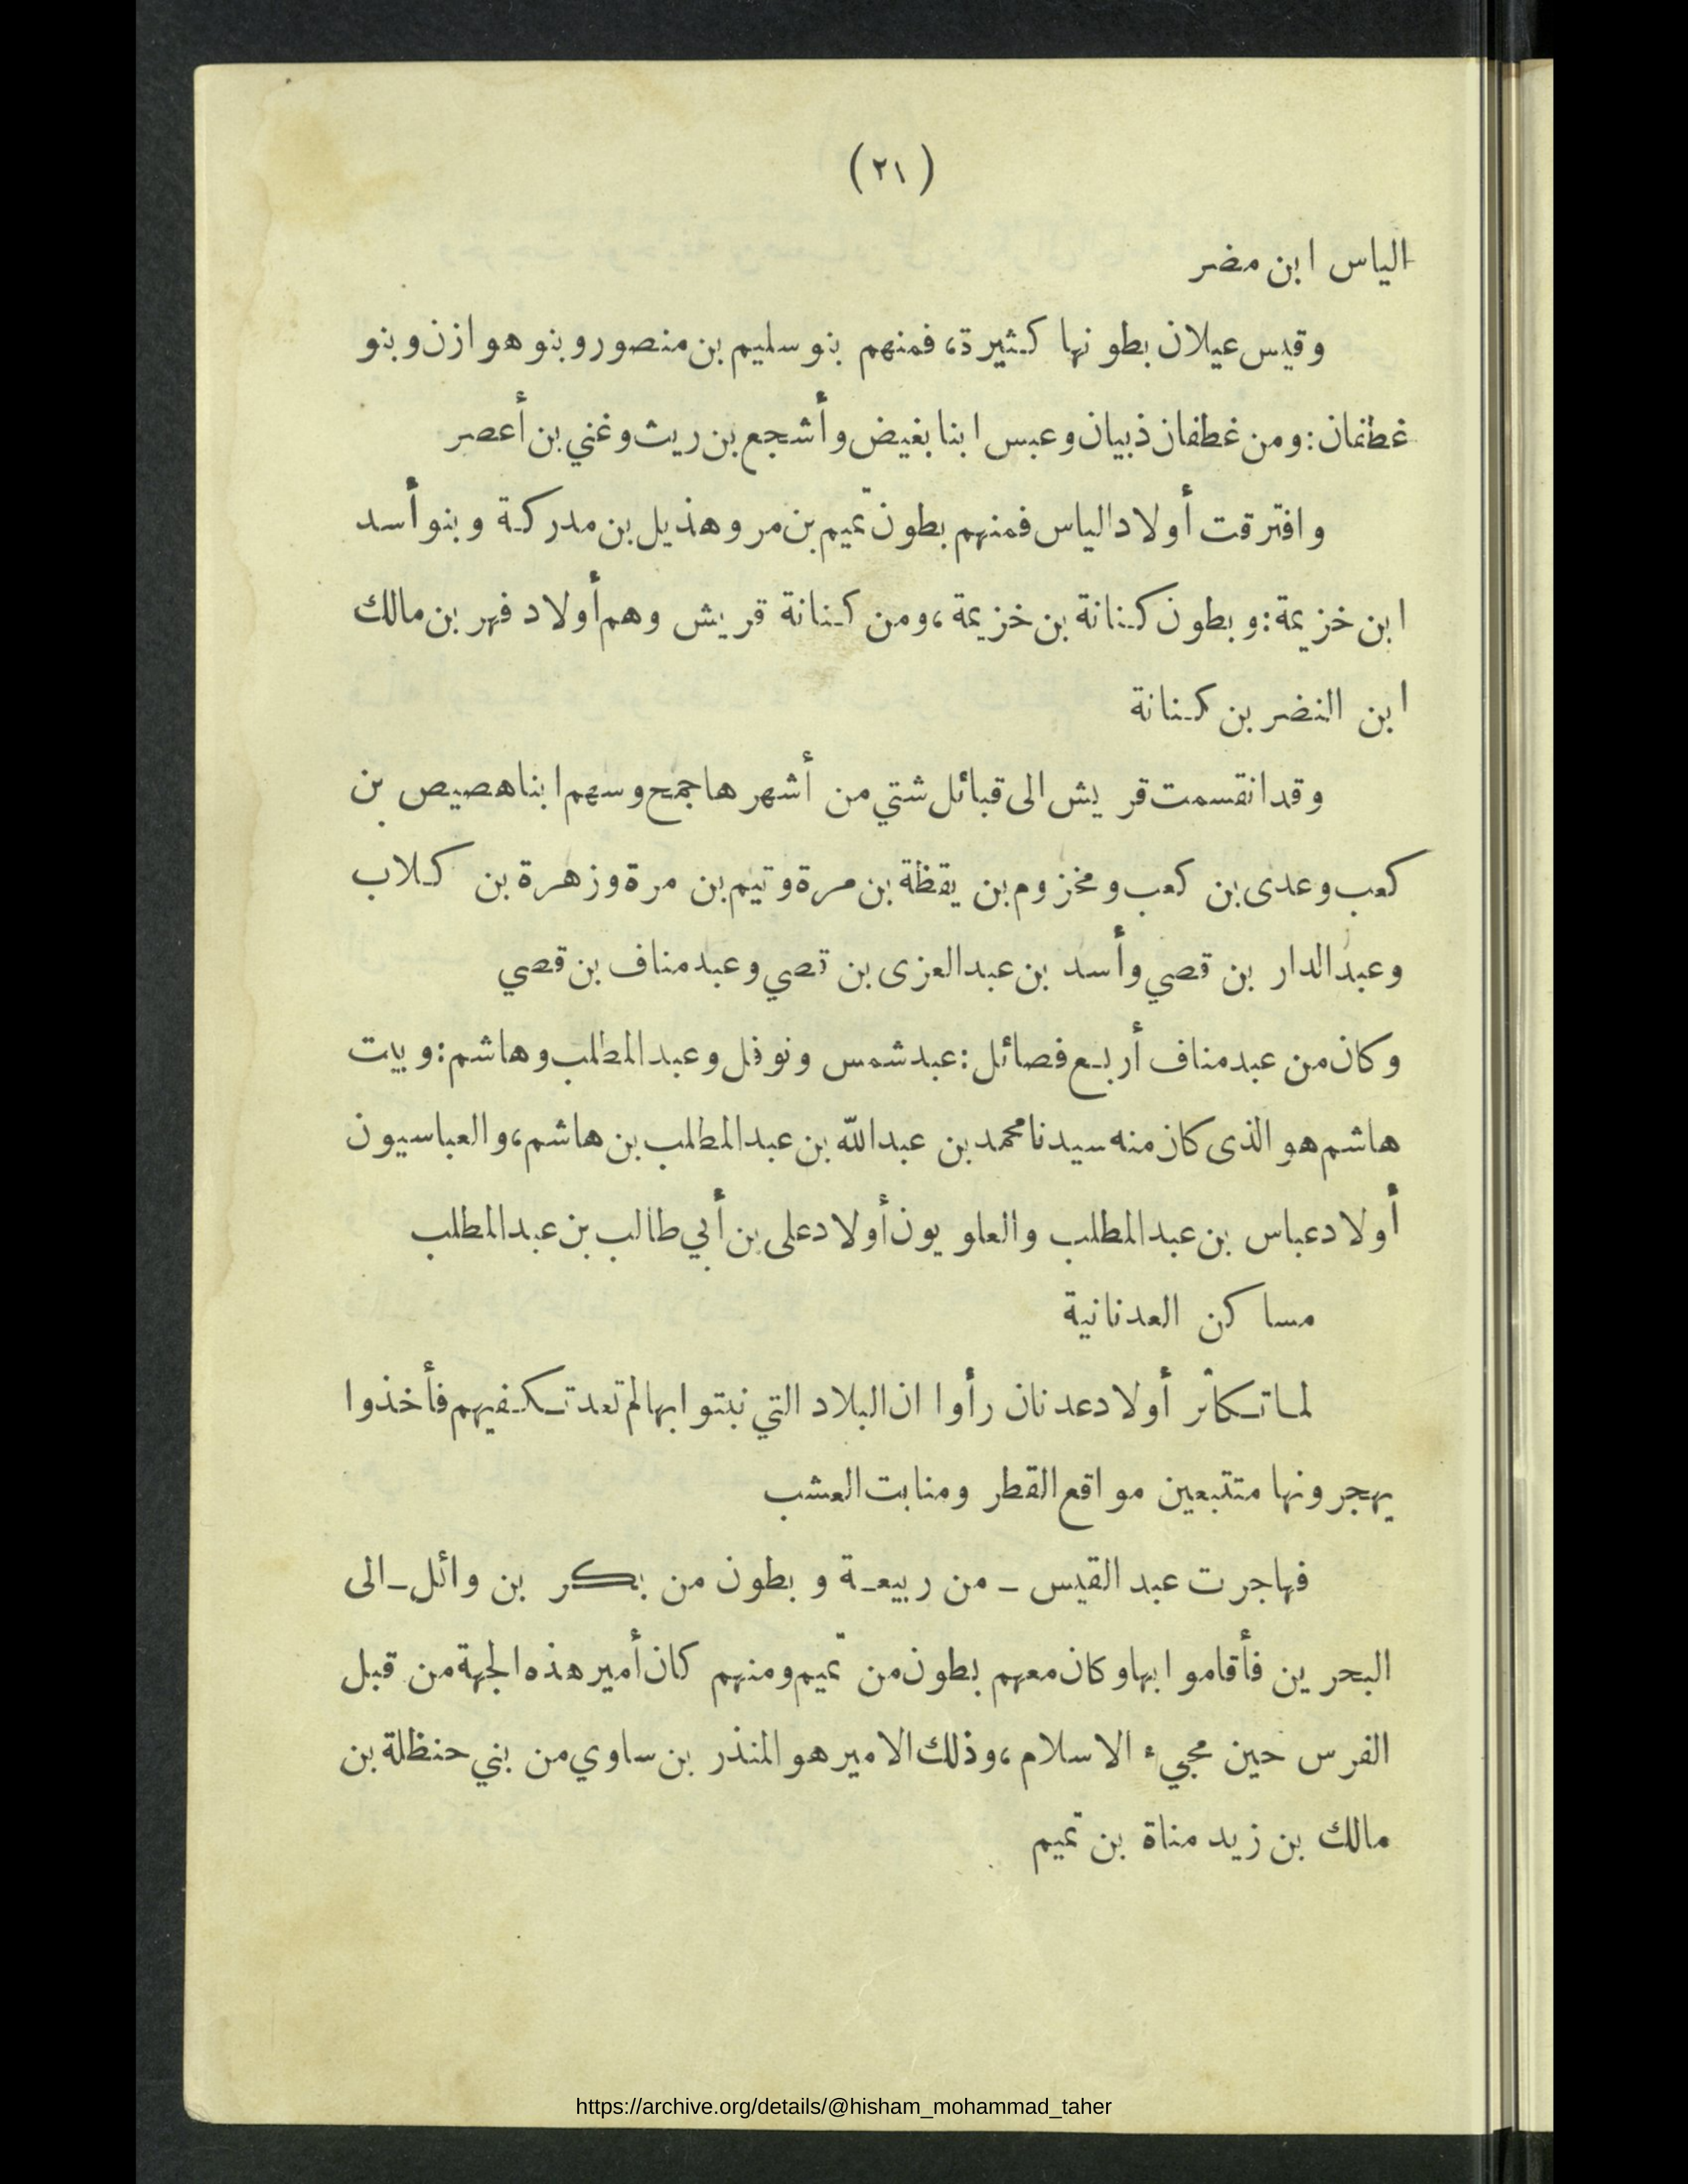 (٢١)
الياس ابن مضر
وقيس عيلان بطونها كثيرة، فمنهم بنو سليم بن منصور وبنو هوازن وبنو
غطفان: ومن غطفان ذبيان وعبس ابنا بغيض وأشجع بن ريث وغني بن أعصر
وافترقت أولاد الياس فمنهم بطون تميم بن مر وهذيل بن مدركة وبنو أسد
ابن خزيمة: وبطون كنانة بن خزيمة، ومن كنانة قريش وهم أولاد فهر بن مالك
ابن النضر بن كنانة
وقد انقسمت قريش الى قبائل شتي من أشهرها جمح وسهم ابنا هصيص بن
كعب وعدى بن كعب ومخزوم بن يقظة بن مرة وتيم بن مرة وزهرة بن كلاب
وعبد الدار بن قصي وأسد بن عبد العزى بن قصي وعبد مناف بن قصي
وكان من عبد مناف أربع فصائل: عبد شمس ونوفل وعبد المطلب وهاشم: وبيت
هاشم هو الذى كان منه سيدنا محمد بن عبد الله بن عبد المطلب بن هاشم، والعباسيون
أولاد عباس بن عبد المطلب والعلويون أولاد على بن أبي طالب بن عبد المطلب
مساكن العدنانية
لما تكاثر أولاد عدنان رأوا ان البلاد التي نبتوا بها لم تعد تكفيهم فأخذوا
يهجرونها متتبعين مواقع القطر ومنابت العشب
فهاجرت عبد القيس ــ من ربيعة وبطون من بكر بن وائل ــ الى
البحرين فأقاموا بها وكان معهم بطون من تميم ومنهم كان أمير هذه الجهة من قبل
الفرس حين مجيء الاسلام، وذلك الامير هو المنذر بن ساوي من بني حنظلة بن
مالك بن زيد مناة بن تميم
https://archive.org/details/@hisham_mohammad_taher